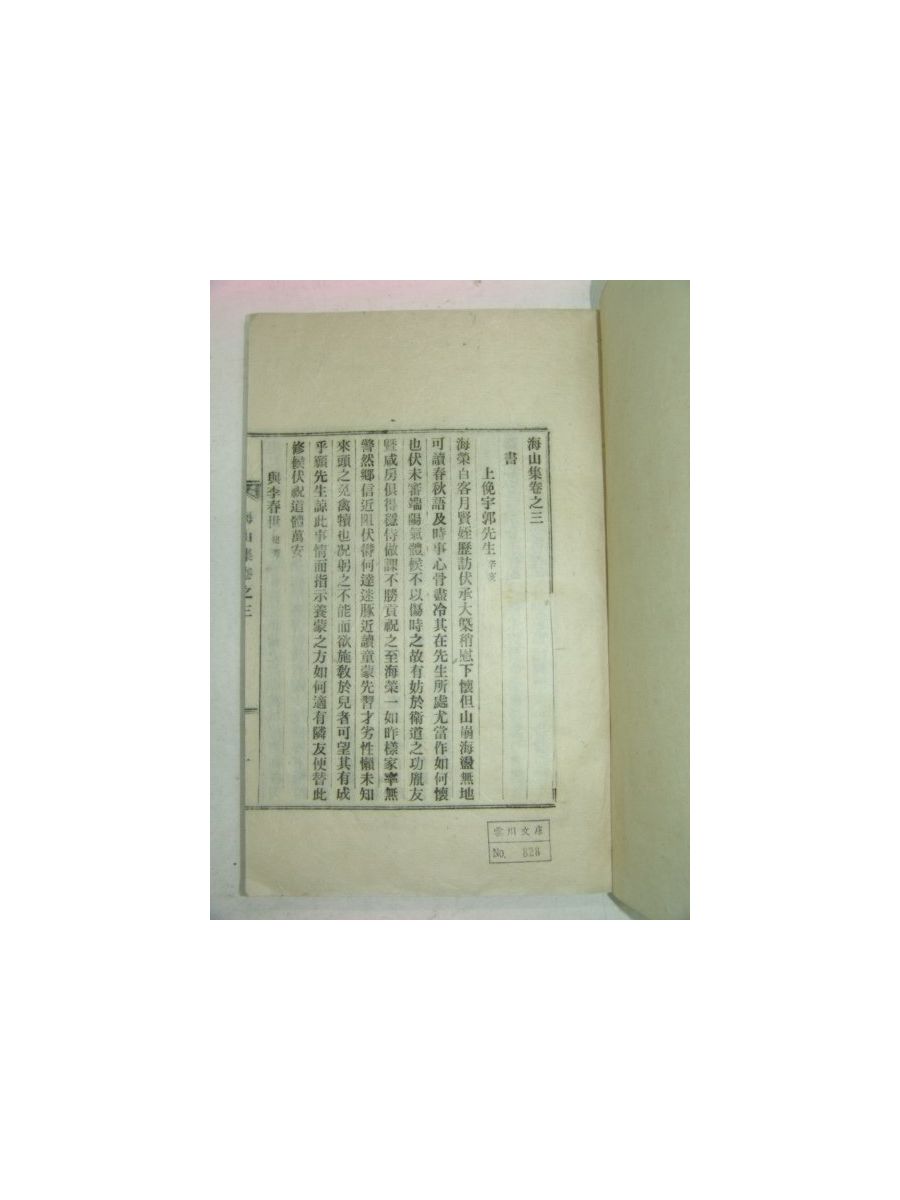 海山集卷之三
書
上俛宇郭先生 辛亥
海榮白客月賢姪歷訪伏承大槩稍慰下懷但山崩海盪無地
可讀春秋語及時事心骨盡冷其在先生所處尤當作如何懷
也伏未審端陽氣體候不以傷時之故有妨於衛道之功胤友
曁咸房俱得穩侍做課不勝貢祝之至海榮一如昨樣家率無
警然鄉信近阻伏鬱何達迷豚近讀童蒙先習才劣性懶未知
來頭之免禽犢也况躬之不能而欲施敎於兒者可望其有成
乎願先生諒此事情而指示養蒙之方如何適有隣友便替此
修候伏祝道體萬安
與李春世
海山集卷之三
雲川文庫
No. 828